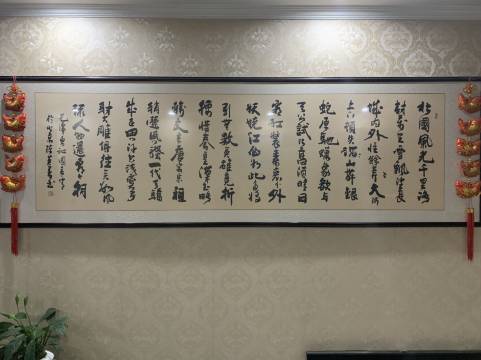 北國風光千里冰
封萬里雪飄望長
城内外惟餘莽莽大河
上下頓失滔滔山舞銀
蛇原馳蠟象欲與
天公試比高須晴日
看紅裝素裹分外
妖嬈江山如此多嬌
引無數英雄競折
腰惜秦皇漢武略
輸文采唐宗宋祖
稍遜風騷一代天驕
成吉思汗只識彎弓
射大雕俱往矣數風
流人物還看今朝
毛澤東詞沁園春雪